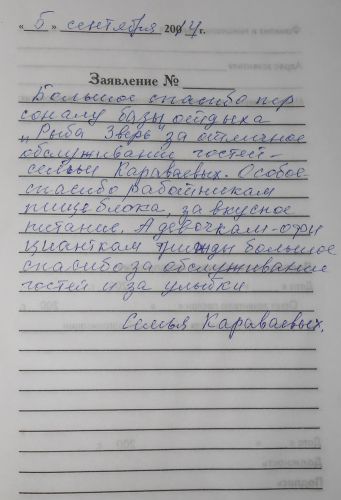 « 5 » сентября 200 14 г.
Заявление №
Большое спасибо пер
соналу базы отдыха
„Рыба Зверь" за отличное
обслуживание гостей –
семьи Караваевых. Особое
спасибо работникам
пищеблока, за вкусное
питание. А девочкам-офи
цианткам трижды большое
спасибо за обслуживание
гостей и за улыбки
Семья Караваевых.